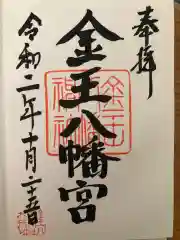 奉拝
金王八幡宮
令和二年十月二十五日